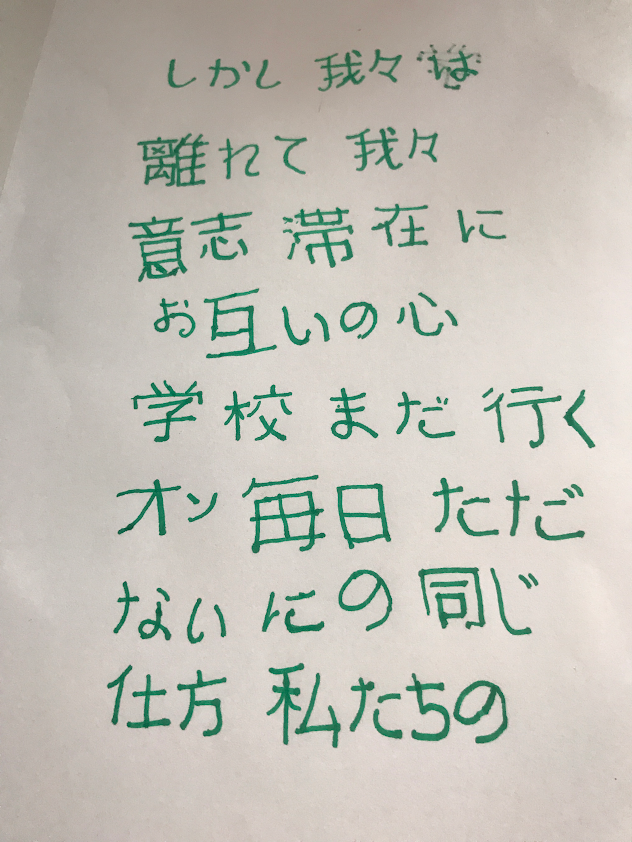 しかし 我々 は
離れて 我々
意志 滞在 に
お互いの 心
学校 まだ 行く
オン 毎日 ただ
ない にの 同じ
仕方 私たちの